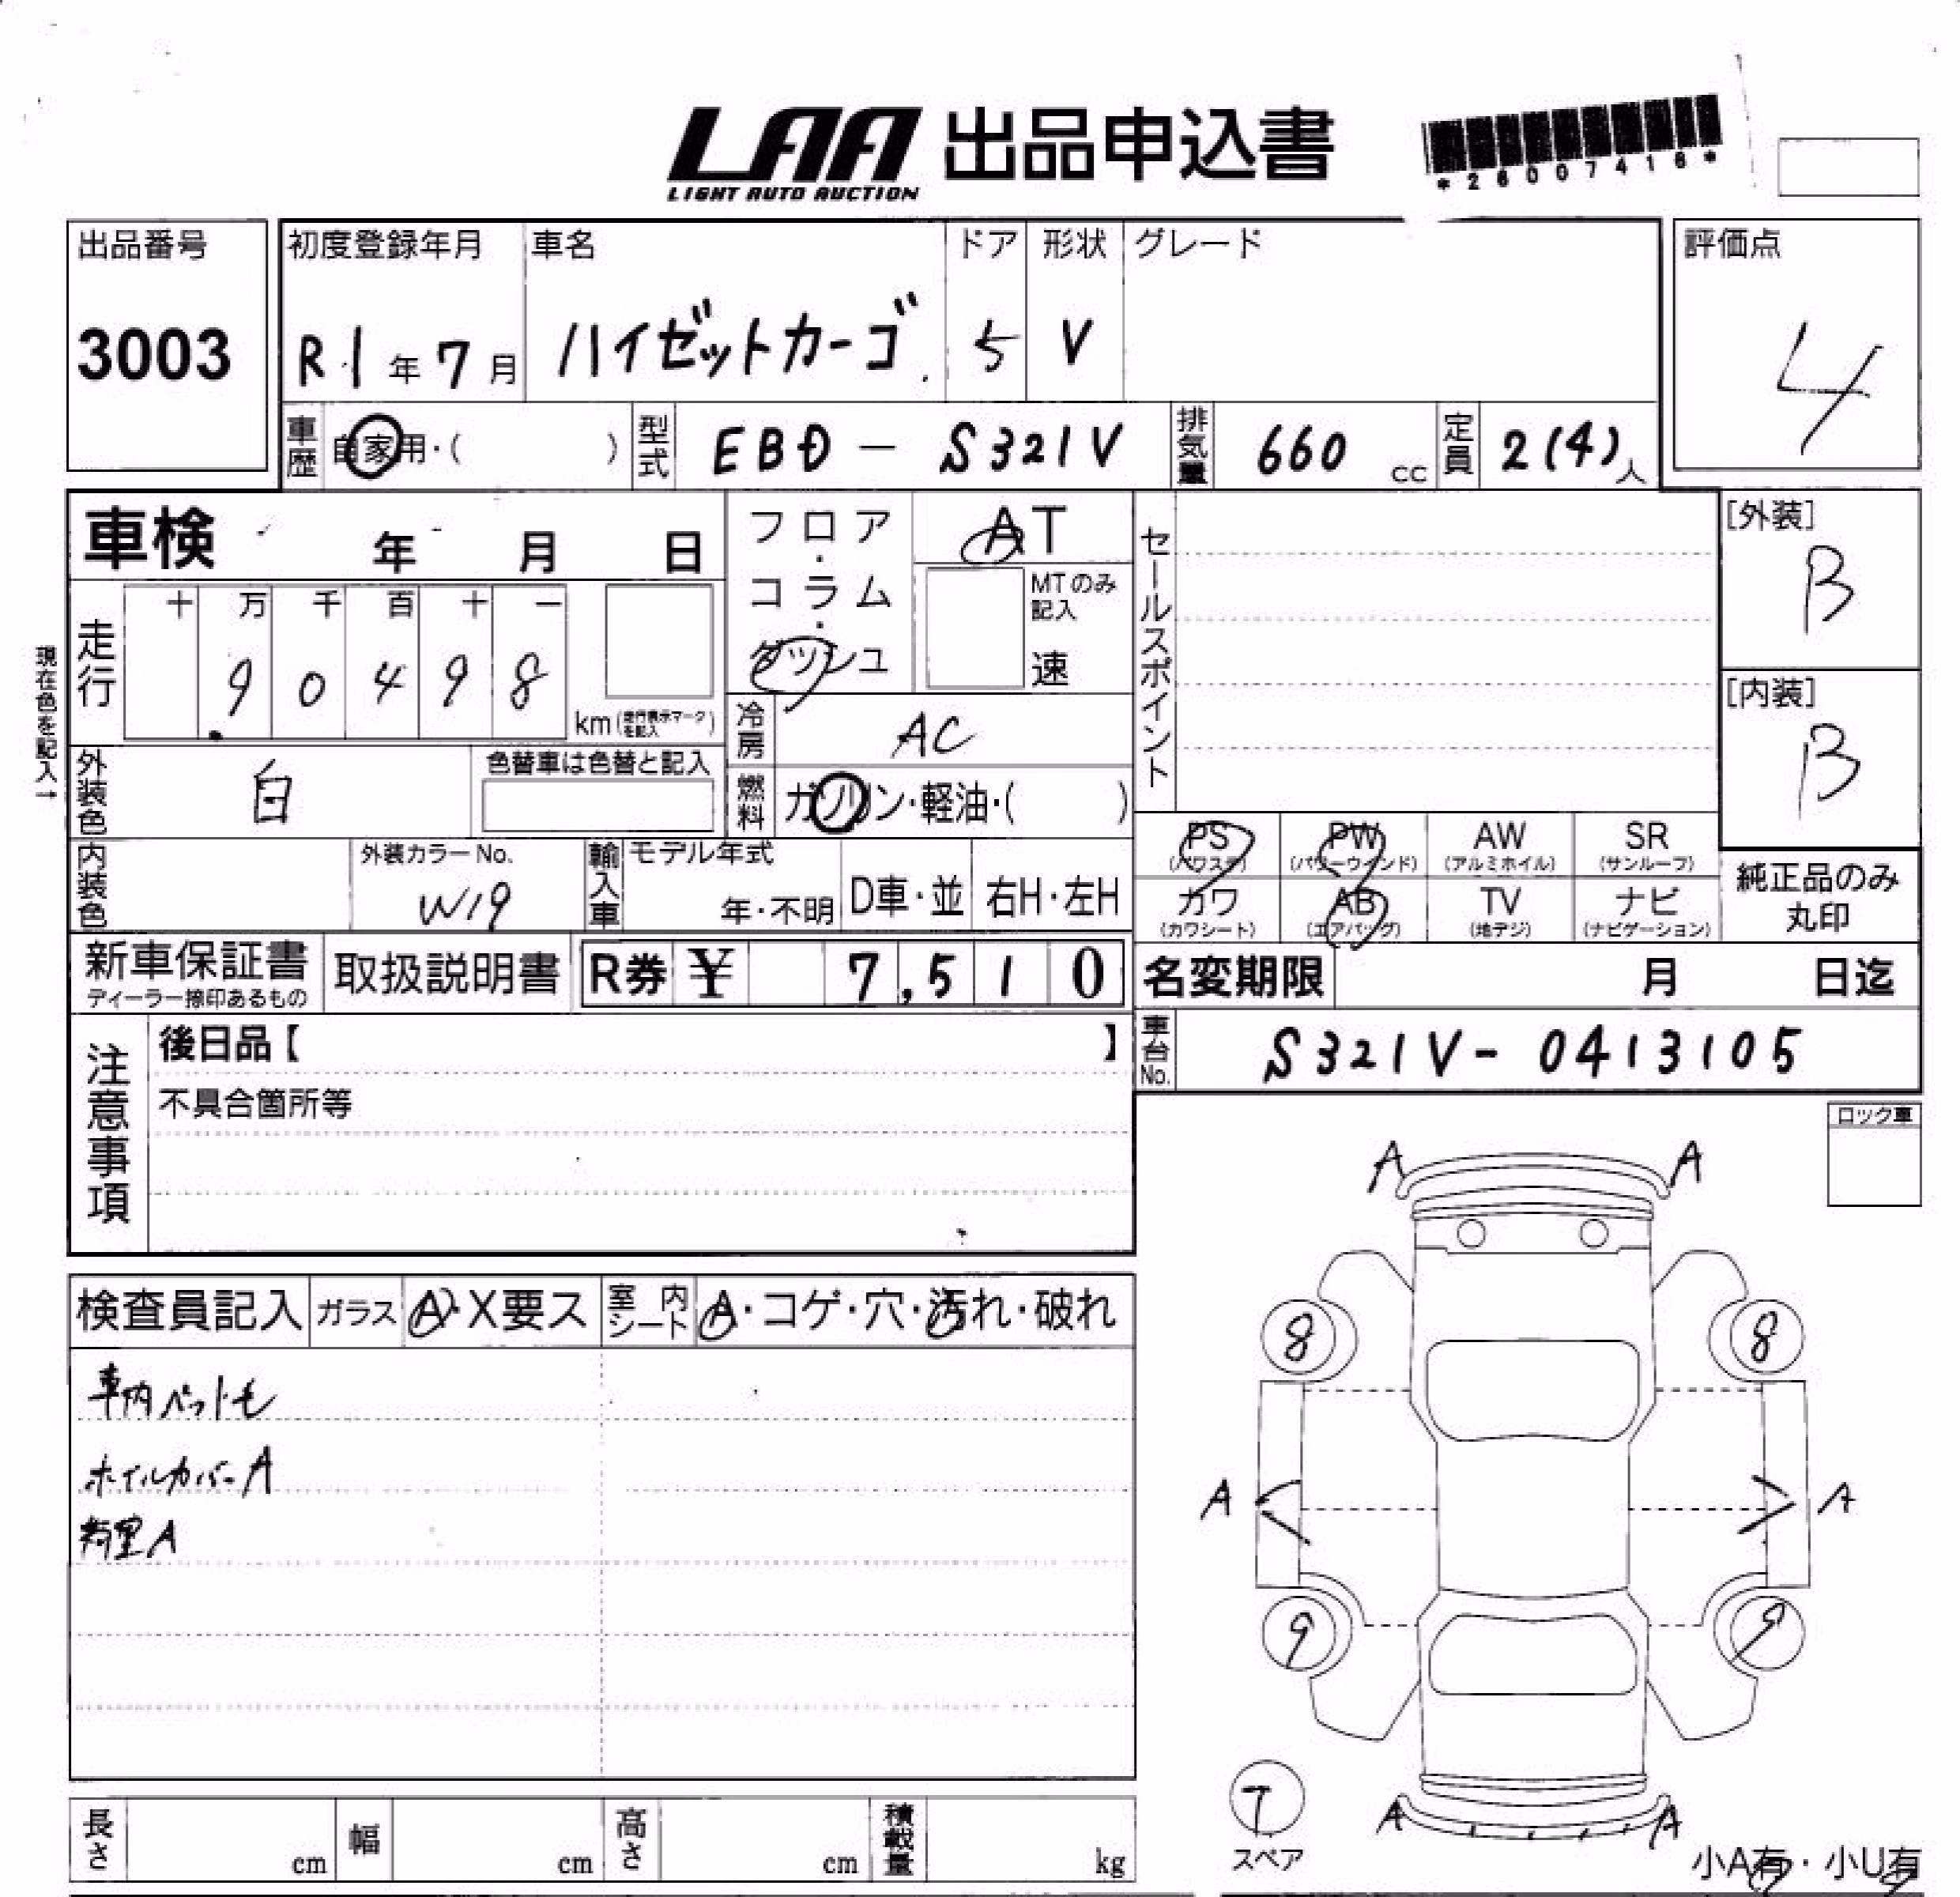 LAA 出品申込書
LIGHT AUTO AUCTION
*26007416*
出品番号
3003
初度登録年月
R1年7月
車名
ハイゼットカーゴ
ドア
5
形状
V
グレード
評価点
4
車歴 自家用・( )
型式 EBD - S321V
排気量 660 cc
定員 2(4)人
車検 年 月 日
フロア・コラム・ダッシュ
AT
MTのみ記入
速
セールスポイント
[外装]
B
[内装]
B
現在色を記入→
走行
十 万 千 百 十 一
9 0 4 9 8
km(走行表示マークを記入)
冷房 AC
燃料 ガソリン・軽油・( )
外装色 白
色替車は色替と記入
内装色
外装カラーNo.
W19
輸入車
モデル年式
年・不明
D車・並
右H・左H
PS (パワステ)
PW (パワーウインド)
AW (アルミホイル)
SR (サンルーフ)
カワ (カワシート)
AB (エアバッグ)
TV (地デジ)
ナビ (ナビゲーション)
純正品のみ丸印
新車保証書
ディーラー捺印あるもの
取扱説明書
R券 ¥ 7,510
名変期限 月 日迄
車台No. S321V- 0413105
注意事項
後日品【 】
不具合箇所等
ロック車
検査員記入
ガラス A・X要ス
室内シート A・コゲ・穴・汚れ・破れ
車内ペット毛
ホイルカバーA
荷室A
A A
8 8
A A
9 9
7
スペア
A A
小A有・小U有
長さ cm
幅 cm
高さ cm
積載量 kg